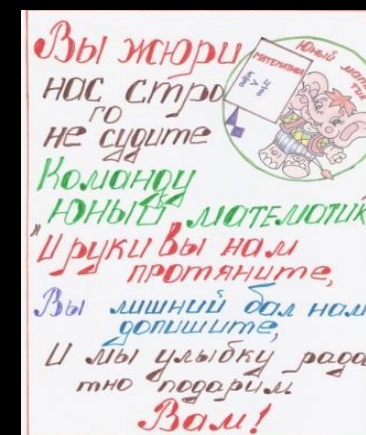 Вы жюри
нас стро
го
не судите
Команду
"Юный математик
И руки Вы нам
протяните,
Вы лишний бал нам
допишите,
И мы улыбку рада
тно подарим
Вам!
МАТЕМАТИКА
5/8 > 4/8
Юный